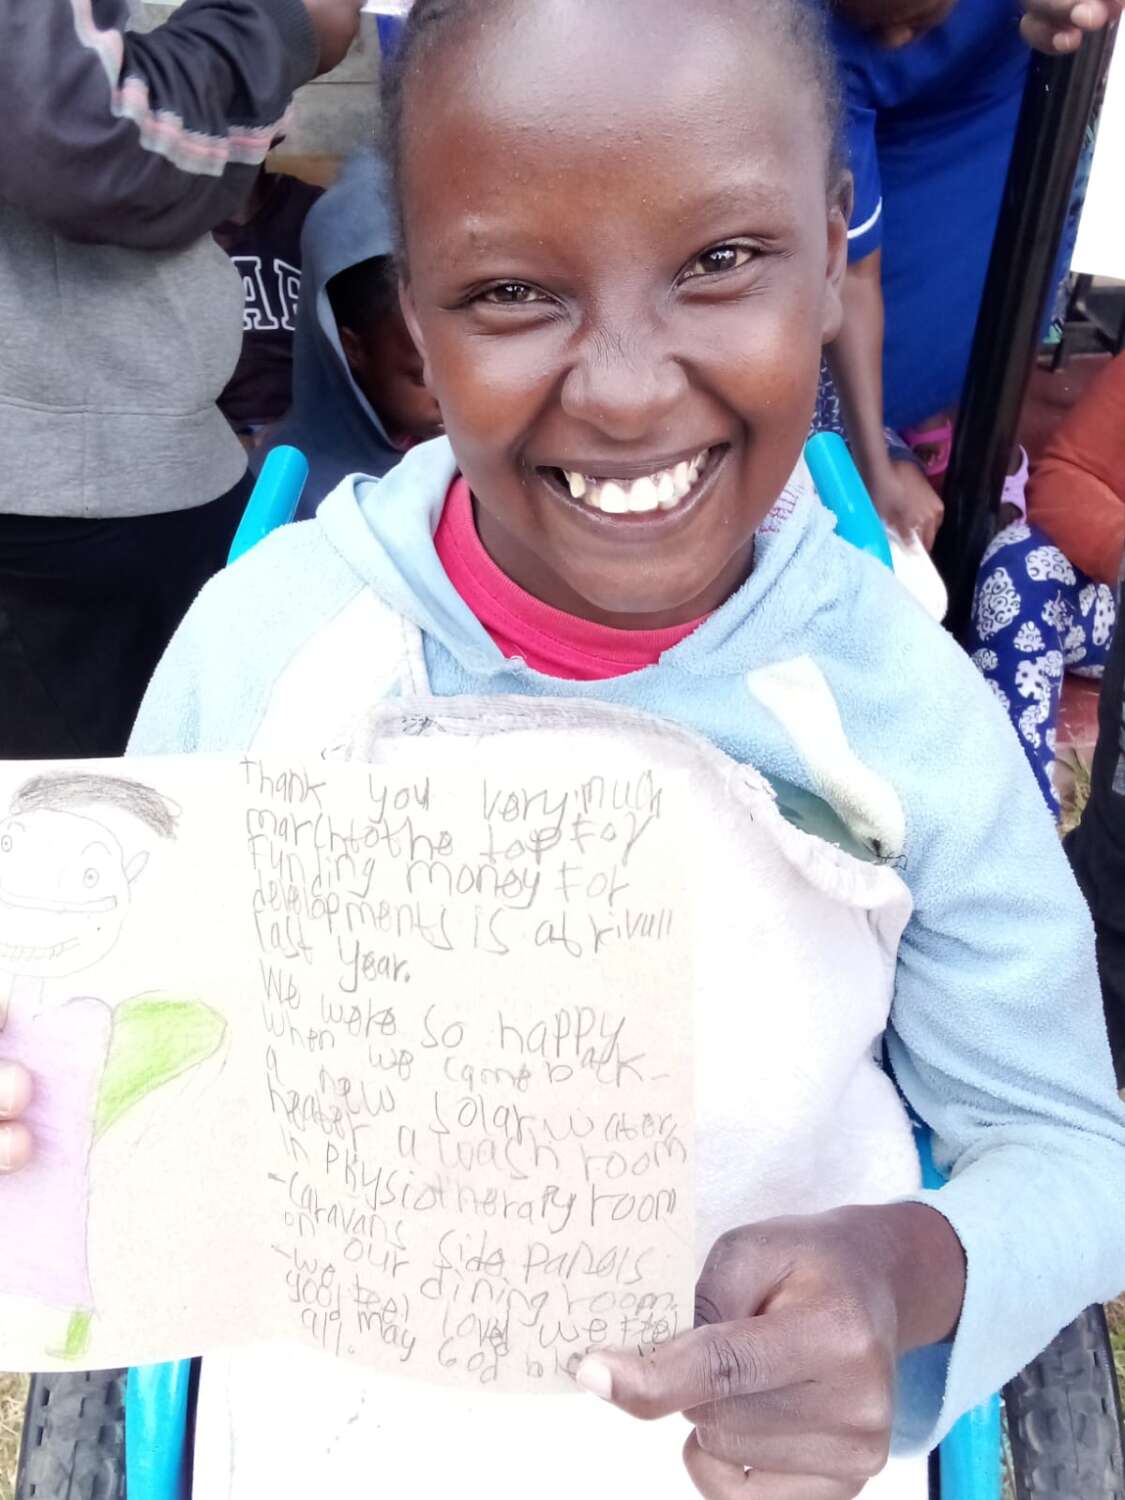 AF
thank you very much
marchtothe top For
Funding money For
developments is at rivall
last year.
We were so happy
When we came back-
a new solar water
heater a wash room
in physiotherapy room
-caravans side panels
on our dining room.
-we feel loved we feel
good
all. may God